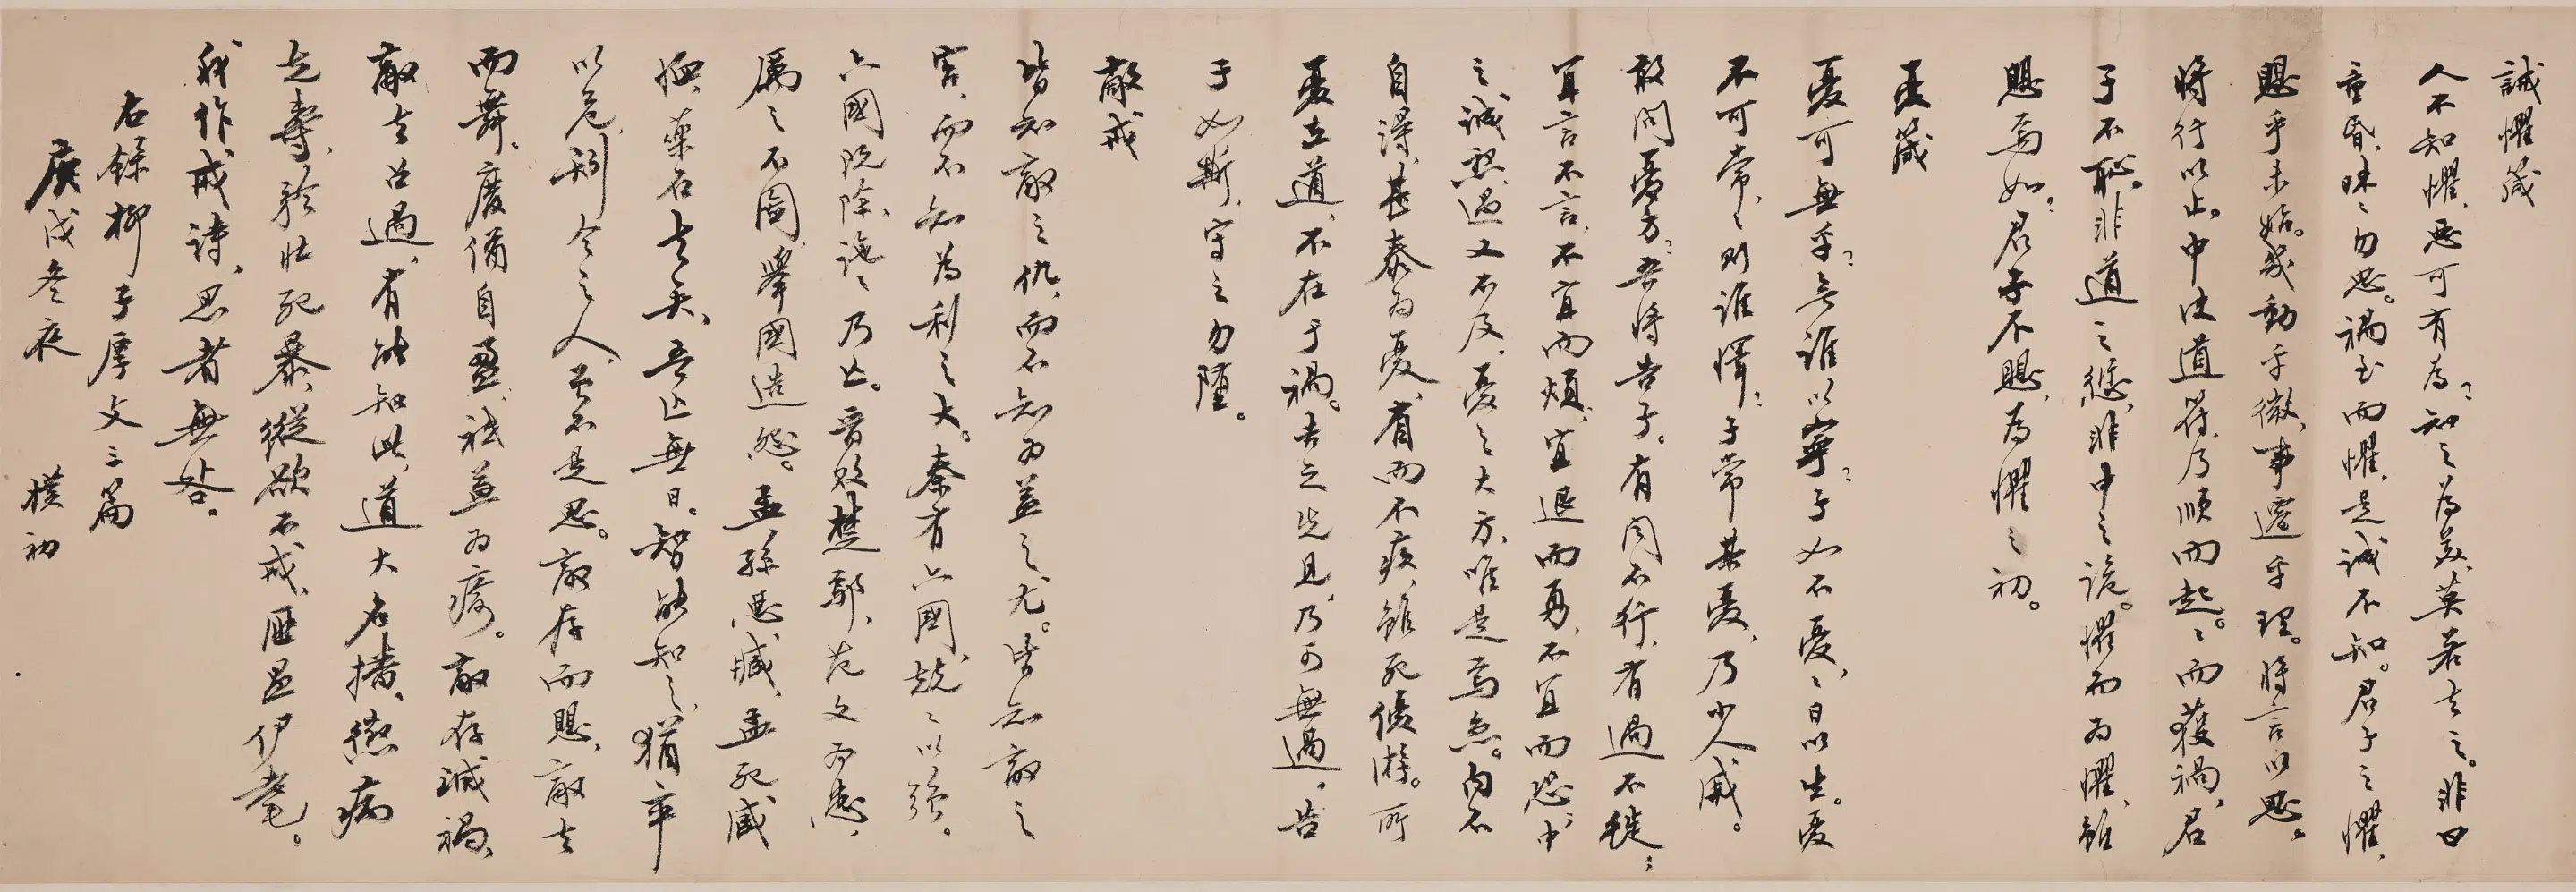 誡懼箴
人不知懼，惡可有為？知之為美，莫若去之。非曰
童昏，昧々勿思。禍至而懼，是誠不知。君子之懼，
愳乎未始。幾動乎微，事遷乎理。將言以思。
將行以止。中決道符，乃順而起。々而獲禍，君
子不恥。非道之愆，非中之詭。懼而為懼，雖
愳焉如？君子不愳，為懼之初。
憂箴
憂可無乎？無誰以寧？子如不憂，々日以生。憂
不可常，々則誰懌？子常其憂，乃小人戚。
敢問憂方？吾將告子。有聞不行，有過不徙；
宜言不言，不宜而煩，宜退而勇，不宜而恐，中
之誠懇，過又不及。憂之大方，唯是焉急。內不
自得，甚泰為憂，省而不疚，雖死優游。所
憂在道，不在于禍。吉之先見，乃可無過，告
子如斯，守之勿墮。
敵戒
皆知敵之仇，而不知為益之尤。皆知敵之
害，而不知為利之大。秦有六國，兢々以強。
六國既除，訑々乃亡。晉敗楚鄢，范文為患，
厲之不圖，舉國造怨。孟孫惡臧，孟死臧
恤，藥石去矣，吾亡無日。智能知之，猶卒
以危，矧今之人，曾不是思。敵存而愳，敵去
而舞，廢備自盈，祗益為瘉。敵存滅禍，
敵去召過，有能知此，道大名播，懲病
克壽，矜壯死暴，縱欲不戒，匪愚伊耄。
我作戒詩，思者無咎。
右錄柳子厚文三篇
庚戌冬夜 樸初